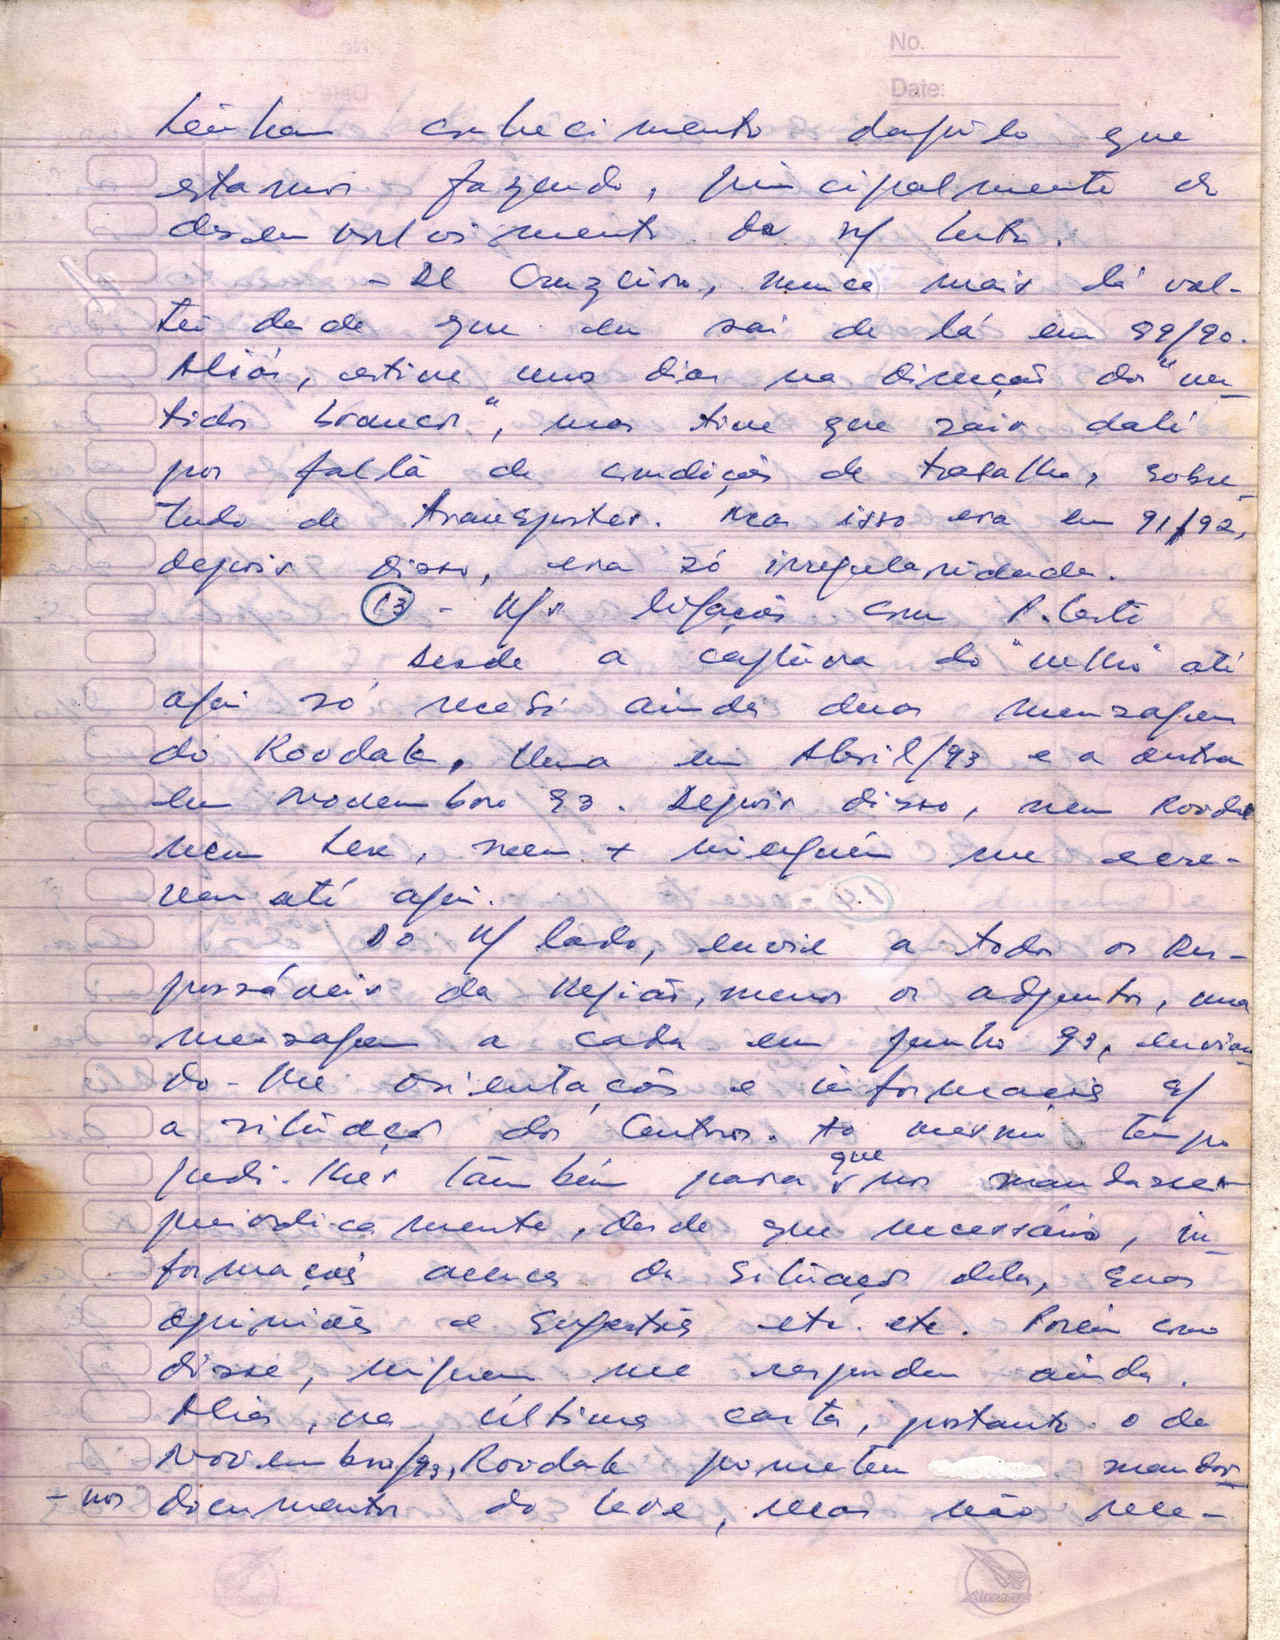 No.
Date:
tenham conhecimento daquilo que
estamos fazendo, principalmente do
desenvolvimento da n/ luta.
- De Cruzeiro, nunca mais lá vol-
tei desde que eu sai de lá em 89/90.
Aliás, estive uns dias na direcção dos "ves-
tidos brancos", mas tive que sair dali
por falta de condições de trabalho, sobre-
tudo de transportes. Mas isso era em 91/92,
depois disso, era só irregularidade.
13 - N/s ligações com P. Leste
Desde a captura do "velho" até
aqui só recebi ainda duas mensagem
do Koodak. Uma em Abril/93 e a outra
em Novembro 93. Depois disso, nem Koodak
nem Lere, nem + ninguém me escre-
veu até aqui.
Do n/ lado, enviei a todos os Res-
ponsáveis da Região, menos os adjuntos, uma
mensagem a cada em junho 93, envian-
do-lhe orientações e informações s/
a situação do Centro. Ao mesmo tempo
pedi-lhes também para que nos mandassem
periodicamente, desde que necessário, in-
formações acerca da situação dela, suas
opiniões e sugestões etc. etc. Porém como
disse, ninguem me respondeu ainda.
Aliás, na última carta, portanto o de
Novembro/93, Koodak prometeu mandar
-nos documentos do Lere, mas não rece-